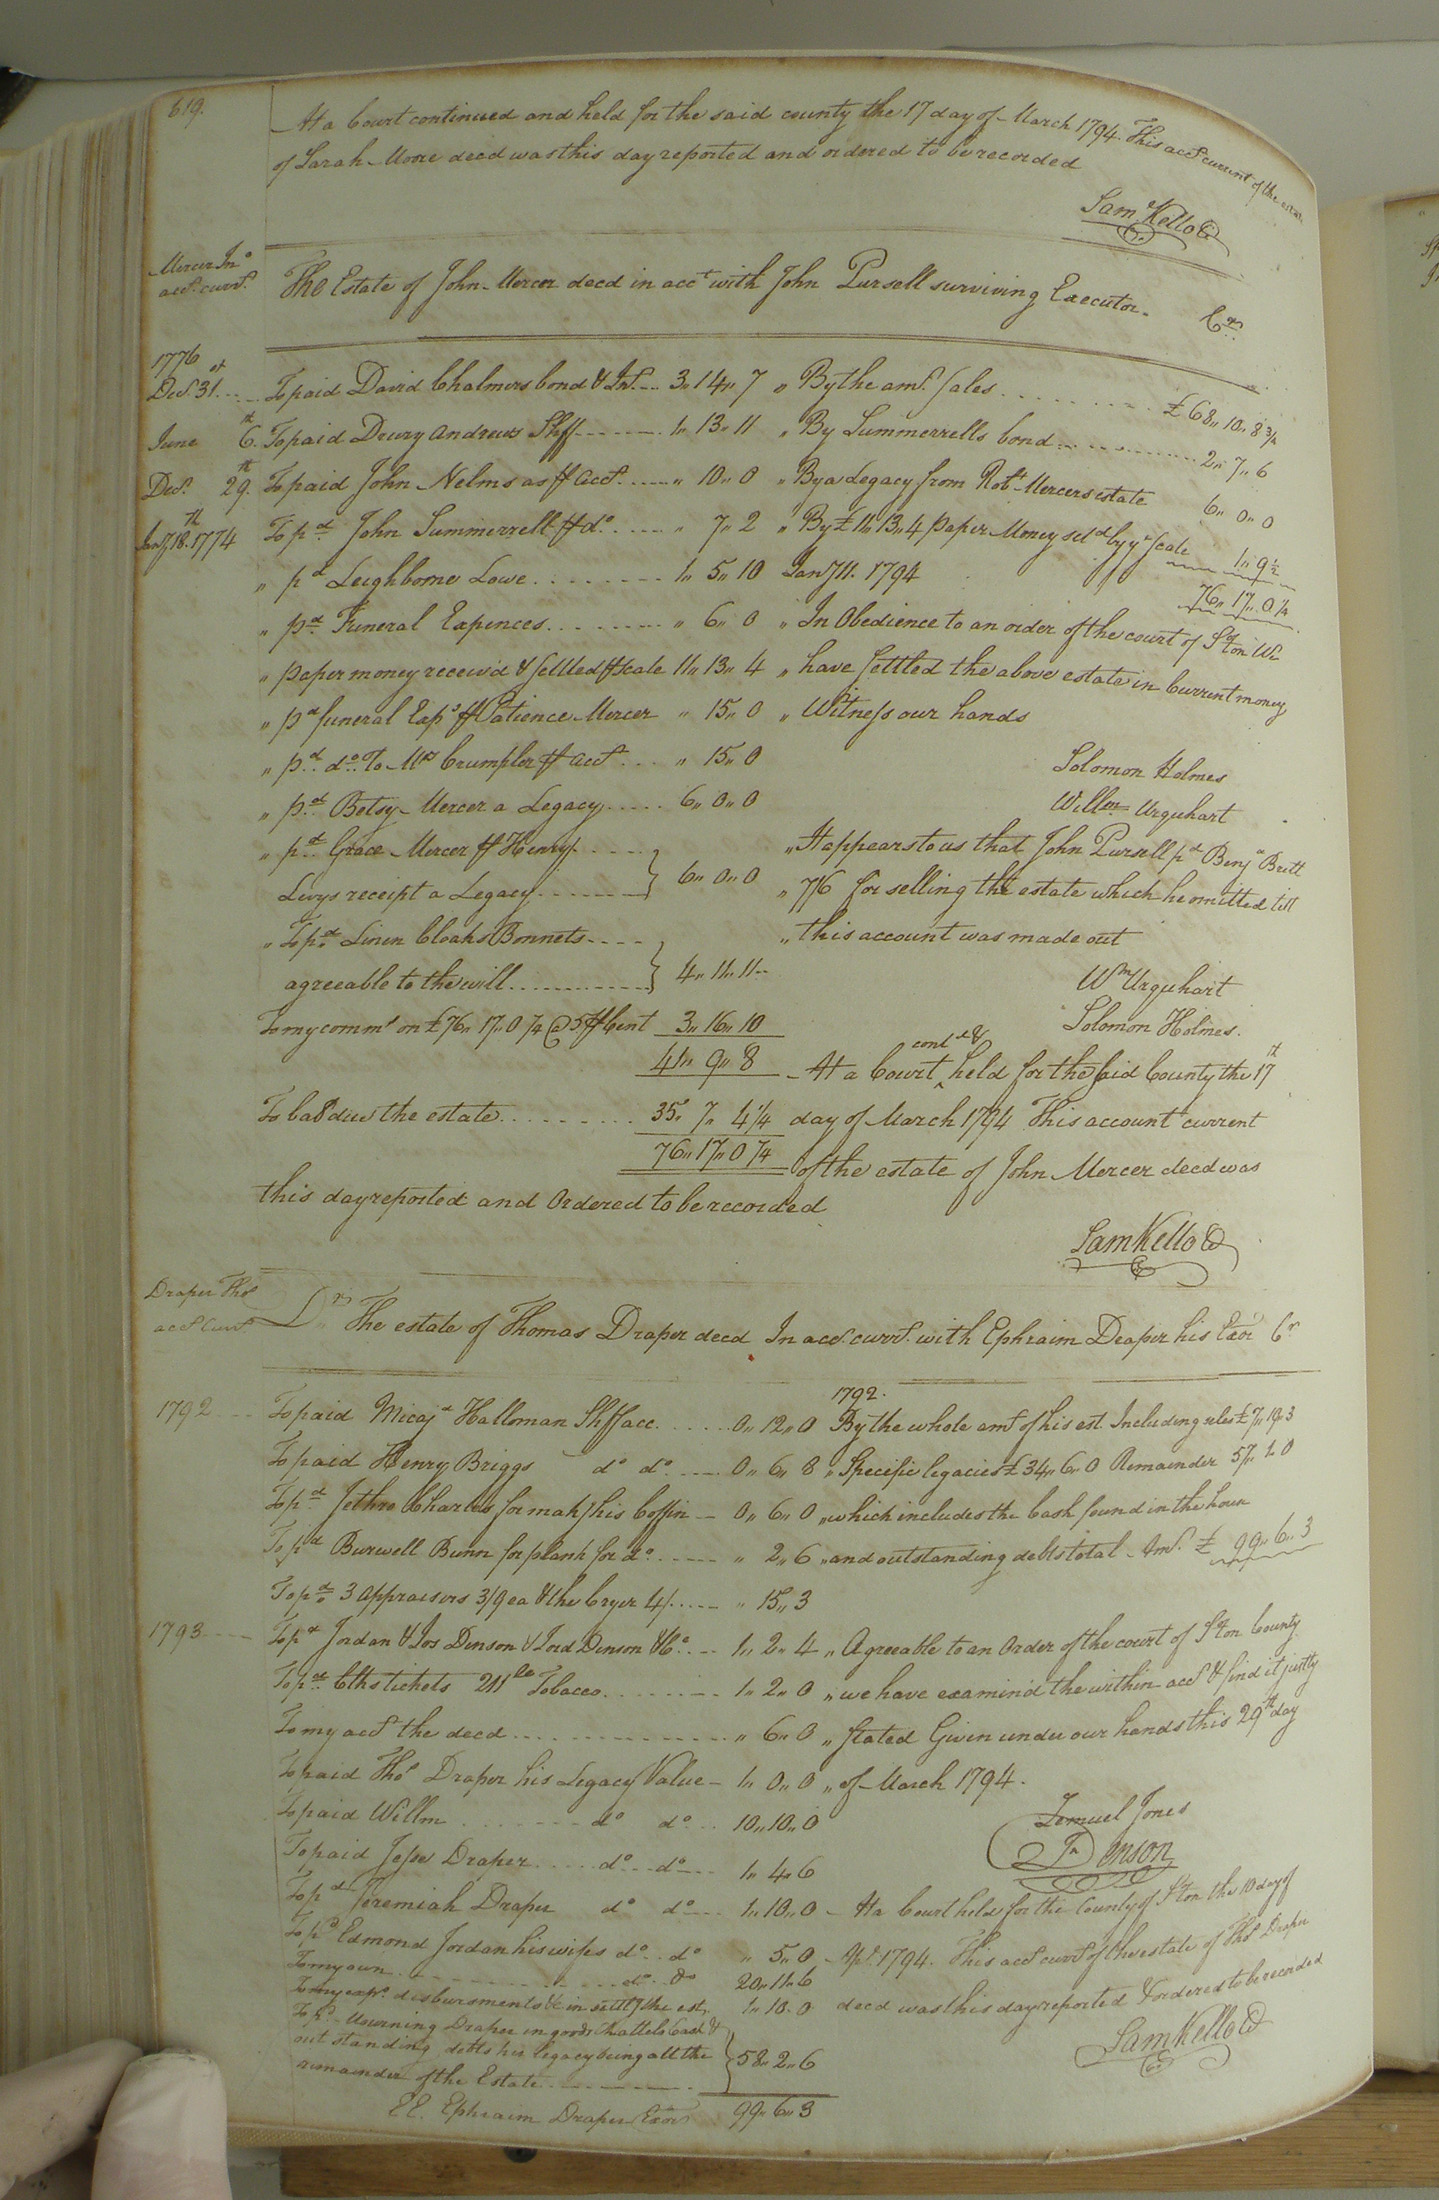 619.
At a Court continued and held for the said county the 17 day of March 1794. This acct current of the estate
of Sarah Moore decd was this day reported and ordered to be recorded
Saml Kello C
Mercer Jno
acct. currt.
The Estate of John Mercer decd in acct with John Pursell surviving Executor. Cr
1776
Decr. 31st To paid David Chalmers bond & Int. 3,, 14,, 7 ,, By the amt. sales £ 68,, 10,, 8 3/4
June 6th. To paid Drury Andrews Shff 1,, 13,, 11 ,, By Summerrells bond 2,, 7,, 6
Decr. 29th. To paid John Nelms as pr acct. ,, 10,, 0 ,, By a Legacy from Robt Mercers estate 6,, 0,, 0
Jany 18th. 1774 To pd John Summerrell pr do. ,, 7,, 2 ,, By £ 11,, 13,, 4 paper Money setd by ye scale 1,, 9 1/2
,, pd Leighborne Lowe 1,, 5,, 10 Jany 11. 1794 76,, 17,, 0 1/4
,, pd Funeral Expences ,, 6,, 0 ,, In Obedience to an order of the court of Ston We
,, paper money receiv'd & settled pr scale 11,, 13,, 4 ,, have settled the above estate in Current money
,, pd funeral Exps pr Patience Mercer ,, 15,, 0 ,, Witness our hands
,, pd. do. To Mrs Crumpler pr acct. ,, 15,, 0 Solomon Holmes
,, pd Betsy Mercer a Legacy 6,, 0,, 0 Willm Urquhart
,, pd. Grace Mercer pr Henry ,, It appears to us that John Pursell pd Benja Britt
Levys receipt a Legacy 6,, 0,, 0 ,, 7/6 for selling the estate which he omitted till
,, To pd Linen Cloaks Bonnets ,, this account was made out
agreeable to the will 4,, 11,, 11 Wm Urquhart
To my comms on £ 76,, 17,, 0 1/4 @ 5 pr Cent 3,, 16,, 10 Solomon Holmes.
41,, 9,, 8 At a Court contd & held for the said County the 17th
To bal due the estate 35,, 7,, 4 1/4 day of March 1794 This account current
76,, 17,, 0 1/4 of the estate of John Mercer decd was
this day reported and Ordered to be recorded
Sam Kello C
Draper Thos
acct Currt
Dr. The estate of Thomas Draper decd In acct. currt. with Ephraim Draper his Exor Cr
1792.
1792 To paid Micaja Halloman Shff acc. 0,, 12,, 0 By the whole amt of his est. Including sales £ 7,, 19,, 3
To paid Henry Briggs do do. 0,, 6,, 8 ,, Specific legacies £ 34,, 6,, 0 Remainder 57,, 1,, 0
To pd Jethro Charles for making his Coffin 0,, 6,, 0 ,, which includes the Cash found in the house
To pd Burwell Bunn for plank for do. ,, 2,, 6 ,, and outstanding debts total Amt. £ 99,, 6,, 3
To pd 3 appraisers 3/9 ea & the Cryer 4/. ,, 15,, 3
1793 To pd Jordan & Jos Denson & Jord Denson & Co. 1,, 2,, 4 ,, Agreeable to an Order of the court of Ston County
To pd. Clks tickets 211 lb Tobacco 1,, 2,, 0 ,, we have examin'd the within acct & find it justly
To my acct the decd ,, 6,, 0 ,, Stated Given under our hands this 29th day
To paid Thos Draper his Legacy Value 1,, 0,, 0 ,, of March 1794.
To paid Willm do do. 10,, 10,, 0 Lemuel Jones
To paid Jesse Draper do. do 1,, 4,, 6 Jn Denson
To pd Jeremiah Draper do do 1,, 10,, 0 At a Court held for the County of Ston the 10 day of
To pd Edmond Jordan his wifes do. do ,, 5,, 0 Apl. 1794. This acct currt of the estate of Thos Draper
To my own do. do 20,, 11,, 6
To my expt. disbursments &c in settlg the est. 1,, 10,, 0 decd was this day reported & ordered to be recorded
To pd. Mourning Draper in goods Chattels Cash & Sam Kello C
out standing debts her legacy being all the
remainder of the Estate 58,, 2,, 6
EE. Ephraim Draper Exor 99,, 6,, 3